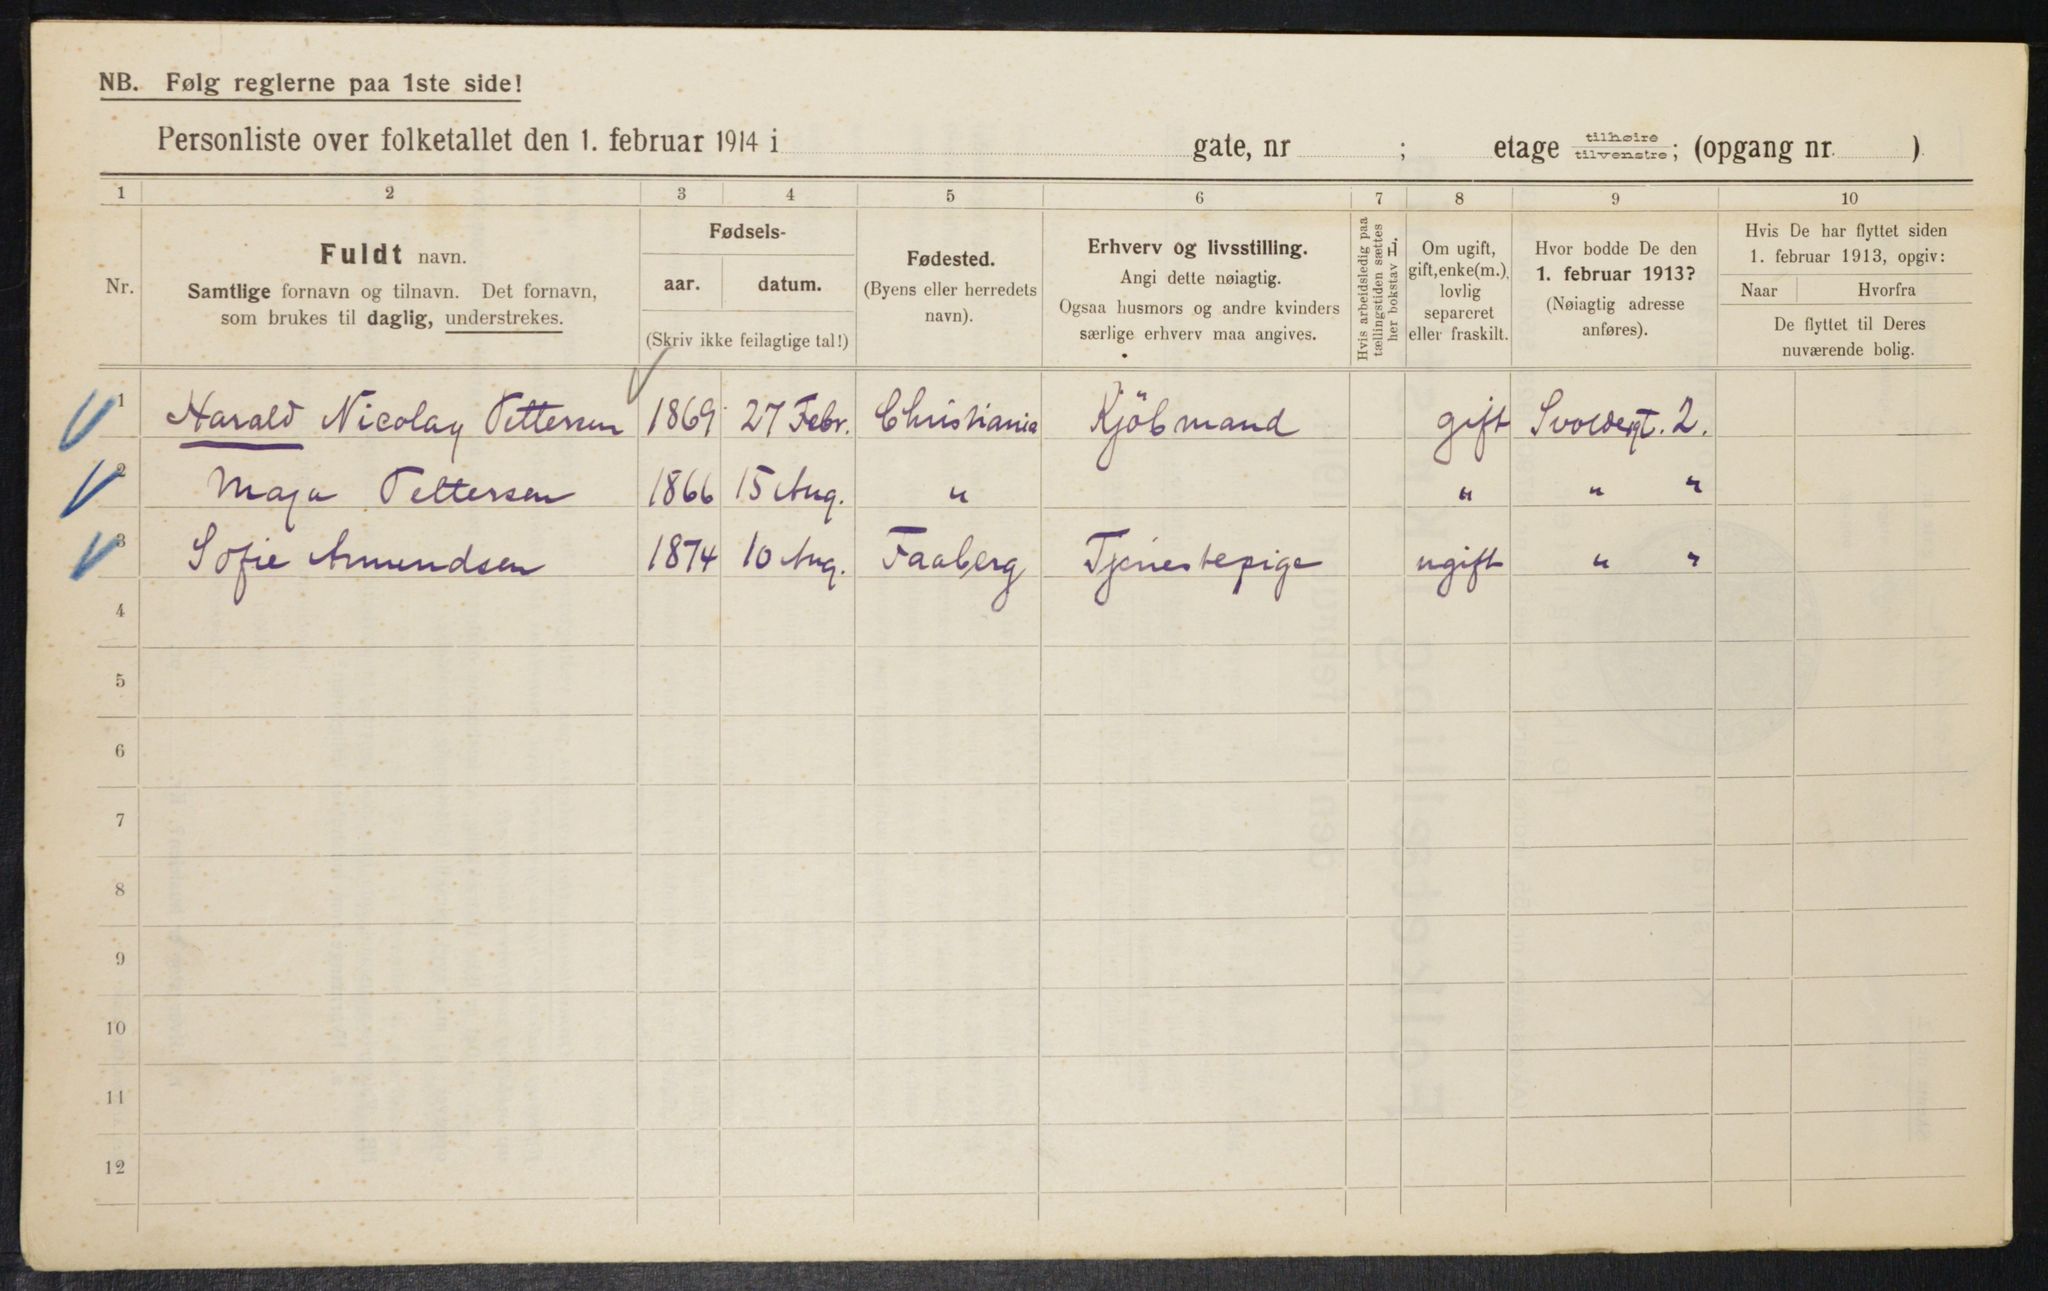 NB. Følg reglerne paa 1ste side!
Personliste over folketallet den 1. februar 1914 i gate, nr ; etage tilhøire tilvenstre; (opgang nr. )
1 2 3 4 5 6 7 8 9 10
Nr.
Fuldt navn.
Samtlige fornavn og tilnavn. Det fornavn,
som brukes til daglig, understrekes.
Fødsels-
aar. datum.
(Skriv ikke feilagtige tal!)
Fødested.
(Byens eller herredets
navn).
Erhverv og livsstilling.
Angi dette nøiagtig.
Ogsaa husmors og andre kvinders
særlige erhverv maa angives.
Hvis arbeidsledig paa
tællingstiden sættes
her bokstav H.
Om ugift,
gift, enke(m.),
lovlig
separeret
eller fraskilt.
Hvor bodde De den
1. februar 1913?
(Nøiagtig adresse
anføres).
Hvis De har flyttet siden
1. februar 1913, opgiv:
Naar Hvorfra
De flyttet til Deres
nuværende bolig.
1 Harald Nicolay Pettersen 1869 27 Febr. Christiania Kjöbmand gift Svoldergt. 2.
2 Maja Pettersen 1866 15 Aug. " " " "
3 Sofie Amundsen 1874 10 Aug. Faaberg Tjenestepige ugift " "
4
5
6
7
8
9
10
11
12